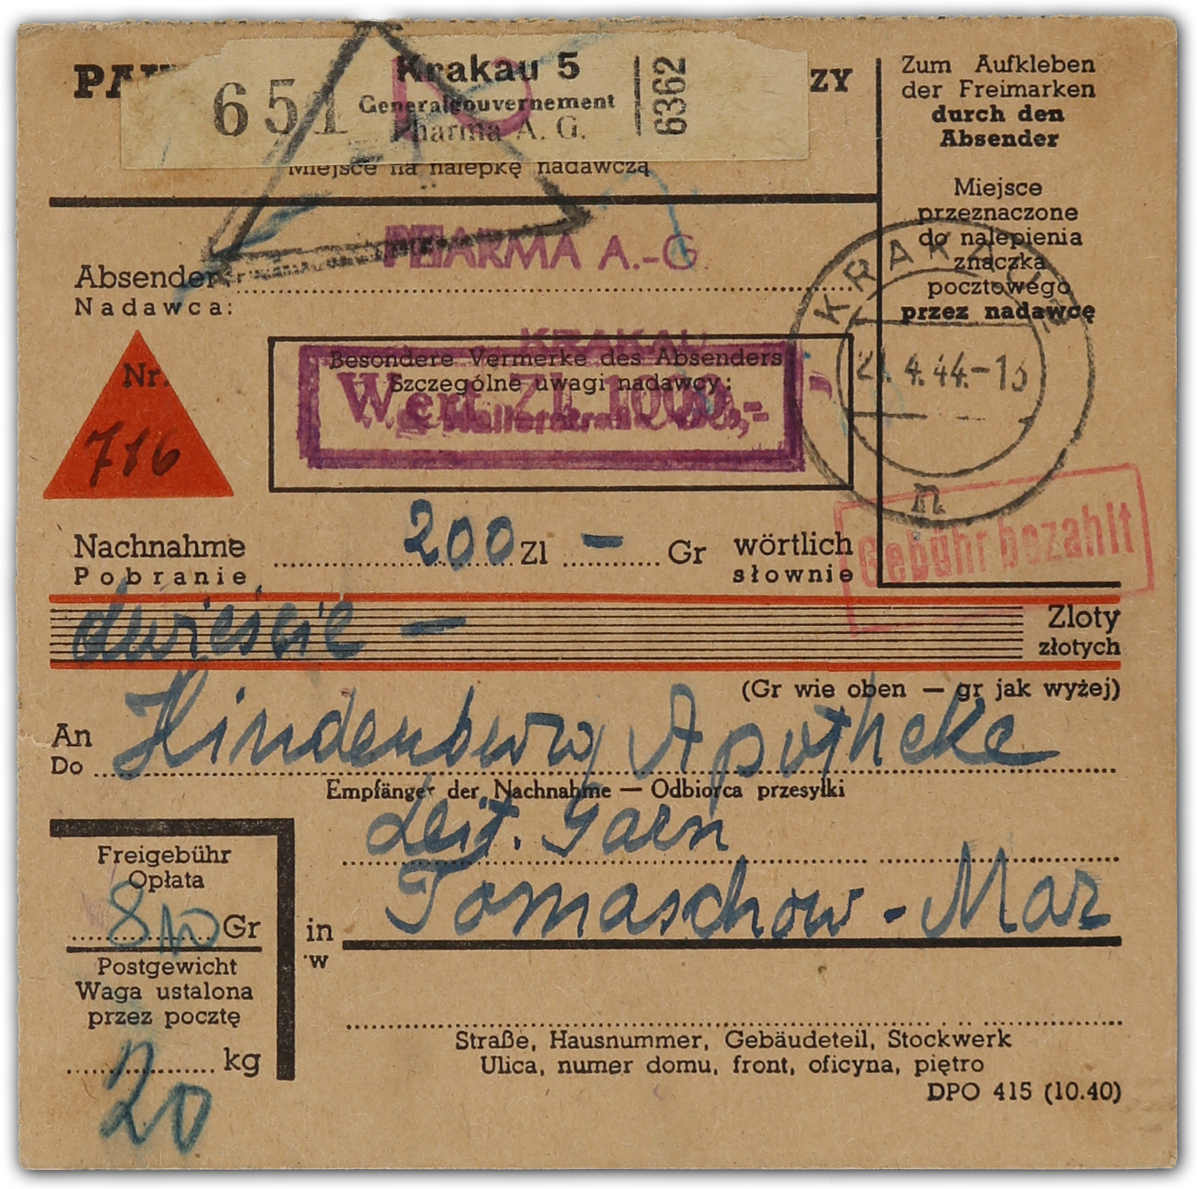 ZY
651 Krakau 5
Generalgouvernement
Pharma A. G.
6362
Miejsce na nalepkę nadawczą
Zum Aufkleben
der Freimarken
durch den
Absender
Miejsce
przeznaczone
do nalepienia
znaczka
pocztowego
przez nadawcę
PHARMA A.-G.
Absender
Nadawca:
KRAKAU
21.4.44.-13
n
Nr.
716
Besondere Vermerke des Absenders
Szczególne uwagi nadawcy:
Wert Zl. 1000,-
Gebühr bezahlt
Nachnahme 200 Zl — Gr wörtlich
Pobranie słownie
dwieście — Zloty
złotych
(Gr wie oben — gr jak wyżej)
An Hindenburg Apotheke
Do
Empfänger der Nachnahme — Odbiorca przesyłki
Leit. Garn
Freigebühr
Opłata
Gr
in Tomaschow - Maz
w
Postgewicht
Waga ustalona
przez pocztę
20 kg
Straße, Hausnummer, Gebäudeteil, Stockwerk
Ulica, numer domu, front, oficyna, piętro
DPO 415 (10.40)